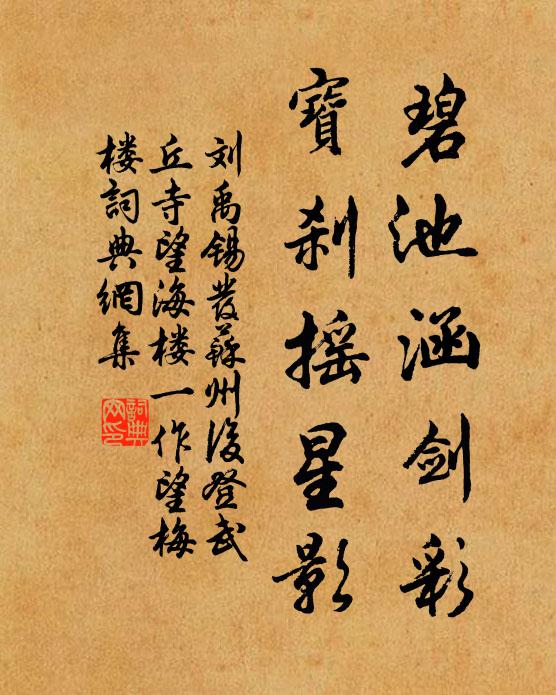 碧池涵剑彩
寶刹摇星影
刘禹锡發蘇州後登武
丘寺望海楼一作望梅
楼詞典網集
詞典
网印